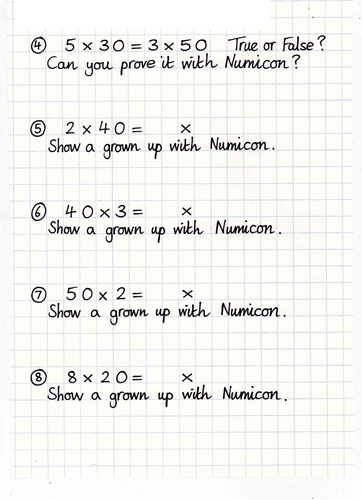 ④ 5 × 30 = 3 × 50 True or False?
Can you prove it with Numicon?
⑤ 2 × 40 = ×
Show a grown up with Numicon.
⑥ 40 × 3 = ×
Show a grown up with Numicon.
⑦ 50 × 2 = ×
Show a grown up with Numicon.
⑧ 8 × 20 = ×
Show a grown up with Numicon.